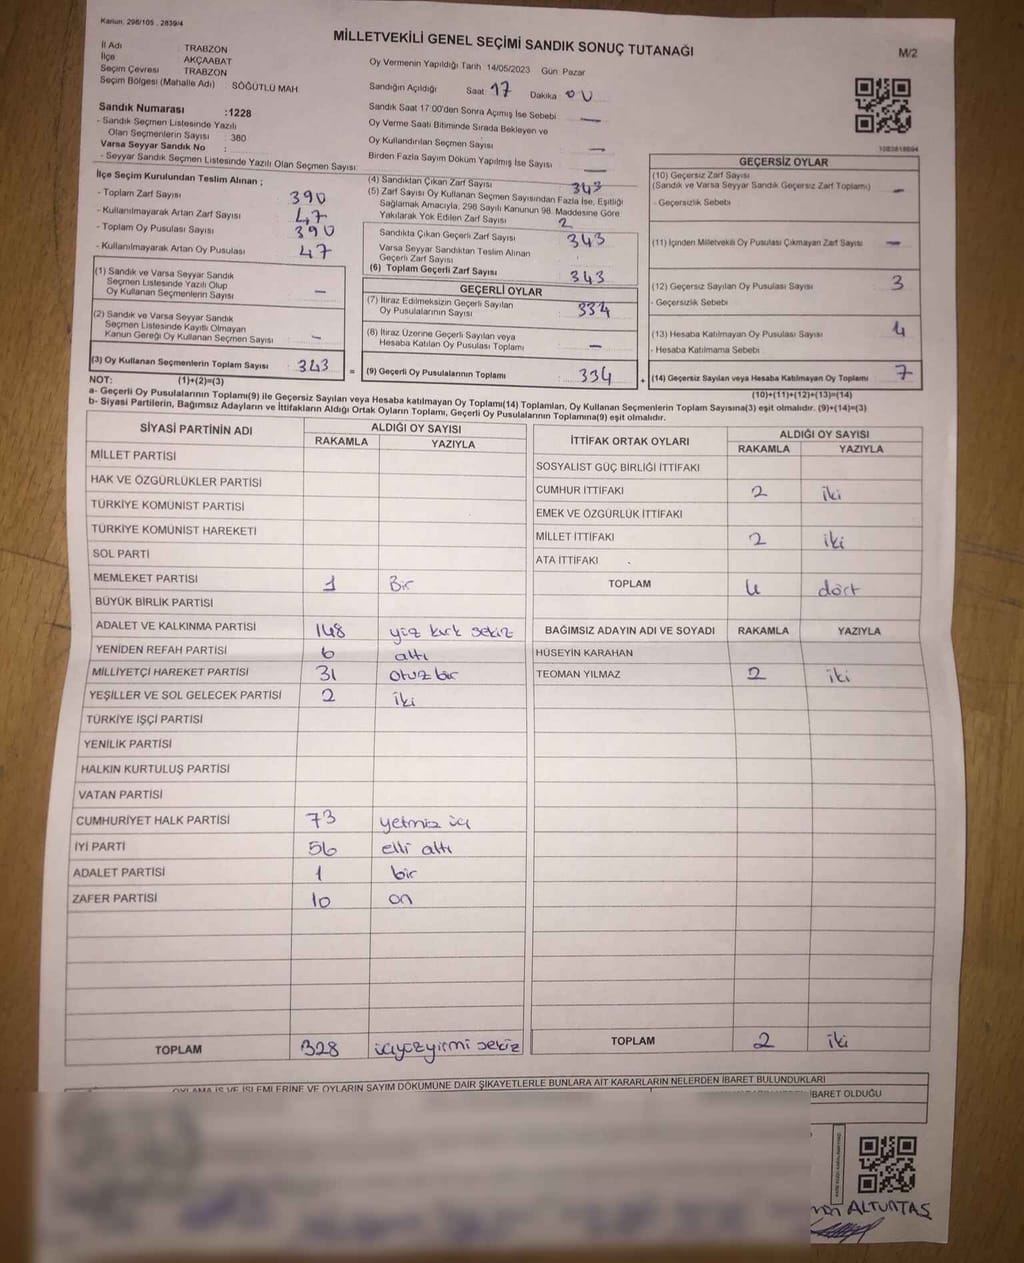 Kanun, 298/105 . 2839/4
MİLLETVEKİLİ GENEL SEÇİMİ SANDIK SONUÇ TUTANAĞI
M/2
İl Adı TRABZON
İlçe AKÇAABAT
Seçim Çevresi TRABZON
Seçim Bölgesi (Mahalle Adı) SÖĞÜTLÜ MAH
Oy Vermenin Yapıldığı Tarih 14/05/2023 Gün Pazar
Sandığın Açıldığı Saat 17 Dakika 00
Sandık Saat 17:00'den Sonra Açımış İse Sebebi —
Oy Verme Saati Bitiminde Sırada Bekleyen ve
Oy Kullandırılan Seçmen Sayısı —
Birden Fazla Sayım Döküm Yapılmış İse Sayısı —
Sandık Numarası :1228
- Sandık Seçmen Listesinde Yazılı
Olan Seçmenlerin Sayısı : 380
Varsa Seyyar Sandık No :
- Seyyar Sandık Seçmen Listesinde Yazılı Olan Seçmen Sayısı:
İlçe Seçim Kurulundan Teslim Alınan ;
- Toplam Zarf Sayısı 390
- Kullanılmayarak Artan Zarf Sayısı 47
- Toplam Oy Pusulası Sayısı 390
- Kullanılmayarak Artan Oy Pusulası 47
(1) Sandık ve Varsa Seyyar Sandık
Seçmen Listesinde Yazılı Olup
Oy Kullanan Seçmenlerin Sayısı —
(2) Sandık ve Varsa Seyyar Sandık
Seçmen Listesinde Kayıtlı Olmayan
Kanun Gereği Oy Kullanan Seçmen Sayısı —
(3) Oy Kullanan Seçmenlerin Toplam Sayısı 343
(4) Sandıktan Çıkan Zarf Sayısı 343
(5) Zarf Sayısı Oy Kullanan Seçmen Sayısından Fazla İse, Eşitliği
Sağlamak Amacıyla, 298 Sayılı Kanunun 98. Maddesine Göre
Yakılarak Yok Edilen Zarf Sayısı 2
Sandıkta Çıkan Geçerli Zarf Sayısı 343
Varsa Seyyar Sandıktan Teslim Alınan
Geçerli Zarf Sayısı
(6) Toplam Geçerli Zarf Sayısı 343
GEÇERLİ OYLAR
(7) İtiraz Edilmeksizin Geçerli Sayılan
Oy Pusulalarının Sayısı 334
(8) İtiraz Üzerine Geçerli Sayılan veya
Hesaba Katılan Oy Pusulası Toplamı —
= (9) Geçerli Oy Pusulalarının Toplamı 334
GEÇERSİZ OYLAR
(10) Geçersiz Zarf Sayısı
(Sandık ve Varsa Seyyar Sandık Geçersiz Zarf Toplamı) —
- Geçersizlik Sebebi
(11) İçinden Milletvekili Oy Pusulası Çıkmayan Zarf Sayısı —
(12) Geçersiz Sayılan Oy Pusulası Sayısı 3
- Geçersizlik Sebebi
(13) Hesaba Katılmayan Oy Pusulası Sayısı 4
- Hesaba Katılmama Sebebi
+ (14) Geçersiz Sayılan veya Hesaba Katılmayan Oy Toplamı 7
NOT: (1)+(2)=(3)
(10)+(11)+(12)+(13)=(14)
a- Geçerli Oy Pusulalarının Toplamı(9) ile Geçersiz Sayılan veya Hesaba katılmayan Oy Toplamı(14) Toplamları, Oy Kullanan Seçmenlerin Toplam Sayısına(3) eşit olmalıdır. (9)+(14)=(3)
b- Siyasi Partilerin, Bağımsız Adayların ve İttifakların Aldığı Ortak Oyların Toplamı, Geçerli Oy Pusulalarının Toplamına(9) eşit olmalıdır.
SİYASİ PARTİNİN ADI
ALDIĞI OY SAYISI
RAKAMLA YAZIYLA
MİLLET PARTİSİ
HAK VE ÖZGÜRLÜKLER PARTİSİ
TÜRKİYE KOMÜNİST PARTİSİ
TÜRKİYE KOMÜNİST HAREKETİ
SOL PARTİ
MEMLEKET PARTİSİ 1 Bir
BÜYÜK BİRLİK PARTİSİ
ADALET VE KALKINMA PARTİSİ 148 yüz kırk sekiz
YENİDEN REFAH PARTİSİ 6 altı
MİLLİYETÇİ HAREKET PARTİSİ 31 otuz bir
YEŞİLLER VE SOL GELECEK PARTİSİ 2 iki
TÜRKİYE İŞÇİ PARTİSİ
YENİLİK PARTİSİ
HALKIN KURTULUŞ PARTİSİ
VATAN PARTİSİ
CUMHURİYET HALK PARTİSİ 73 yetmiş üç
İYİ PARTİ 56 elli altı
ADALET PARTİSİ 1 bir
ZAFER PARTİSİ 10 on
TOPLAM 328 üçyüzyirmi sekiz
İTTİFAK ORTAK OYLARI
ALDIĞI OY SAYISI
RAKAMLA YAZIYLA
SOSYALIST GÜÇ BİRLİĞİ İTTİFAKI
CUMHUR İTTİFAKI 2 iki
EMEK VE ÖZGÜRLÜK İTTİFAKI
MİLLET İTTİFAKI 2 iki
ATA İTTİFAKI
TOPLAM 4 dört
BAĞIMSIZ ADAYIN ADI VE SOYADI RAKAMLA YAZIYLA
HÜSEYİN KARAHAN
TEOMAN YILMAZ 2 iki
TOPLAM 2 iki
OYLAMA İŞ VE İŞLEMLERİNE VE OYLARIN SAYIM DÖKÜMÜNE DAİR ŞİKAYETLERLE BUNLARA AİT KARARLARIN NELERDEN İBARET BULUNDUKLARI
İBARET OLDUĞU
ALTUNTAŞ